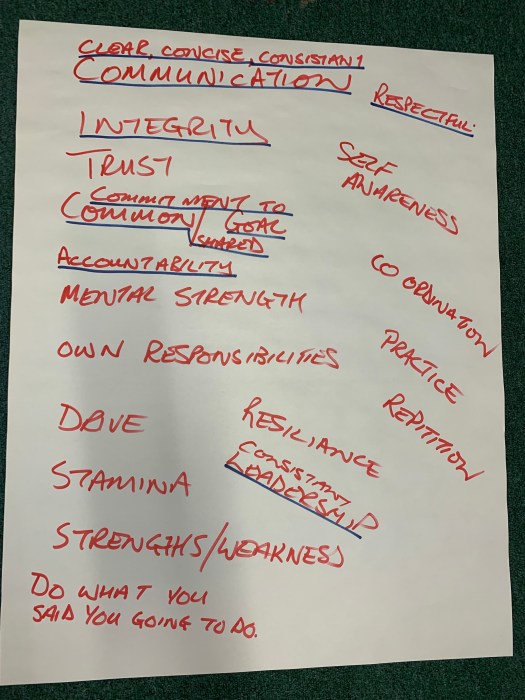 CLEAR, CONCISE, CONSISTANT
COMMUNICATION
RESPECTFUL.
INTEGRITY
TRUST
SELF
AWARENESS
COMMITMENT TO
COMMON/ GOAL
SHARED
ACCOUNTABILITY
MENTAL STRENGTH
COORDINATION
OWN RESPONSIBILITIES
PRACTICE
REPITITION
DRIVE
RESILIANCE
CONSISTANT
LEADERSHIP
STAMINA
STRENGTHS/WEAKNESS
DO WHAT YOU
SAID YOU GOING TO DO.